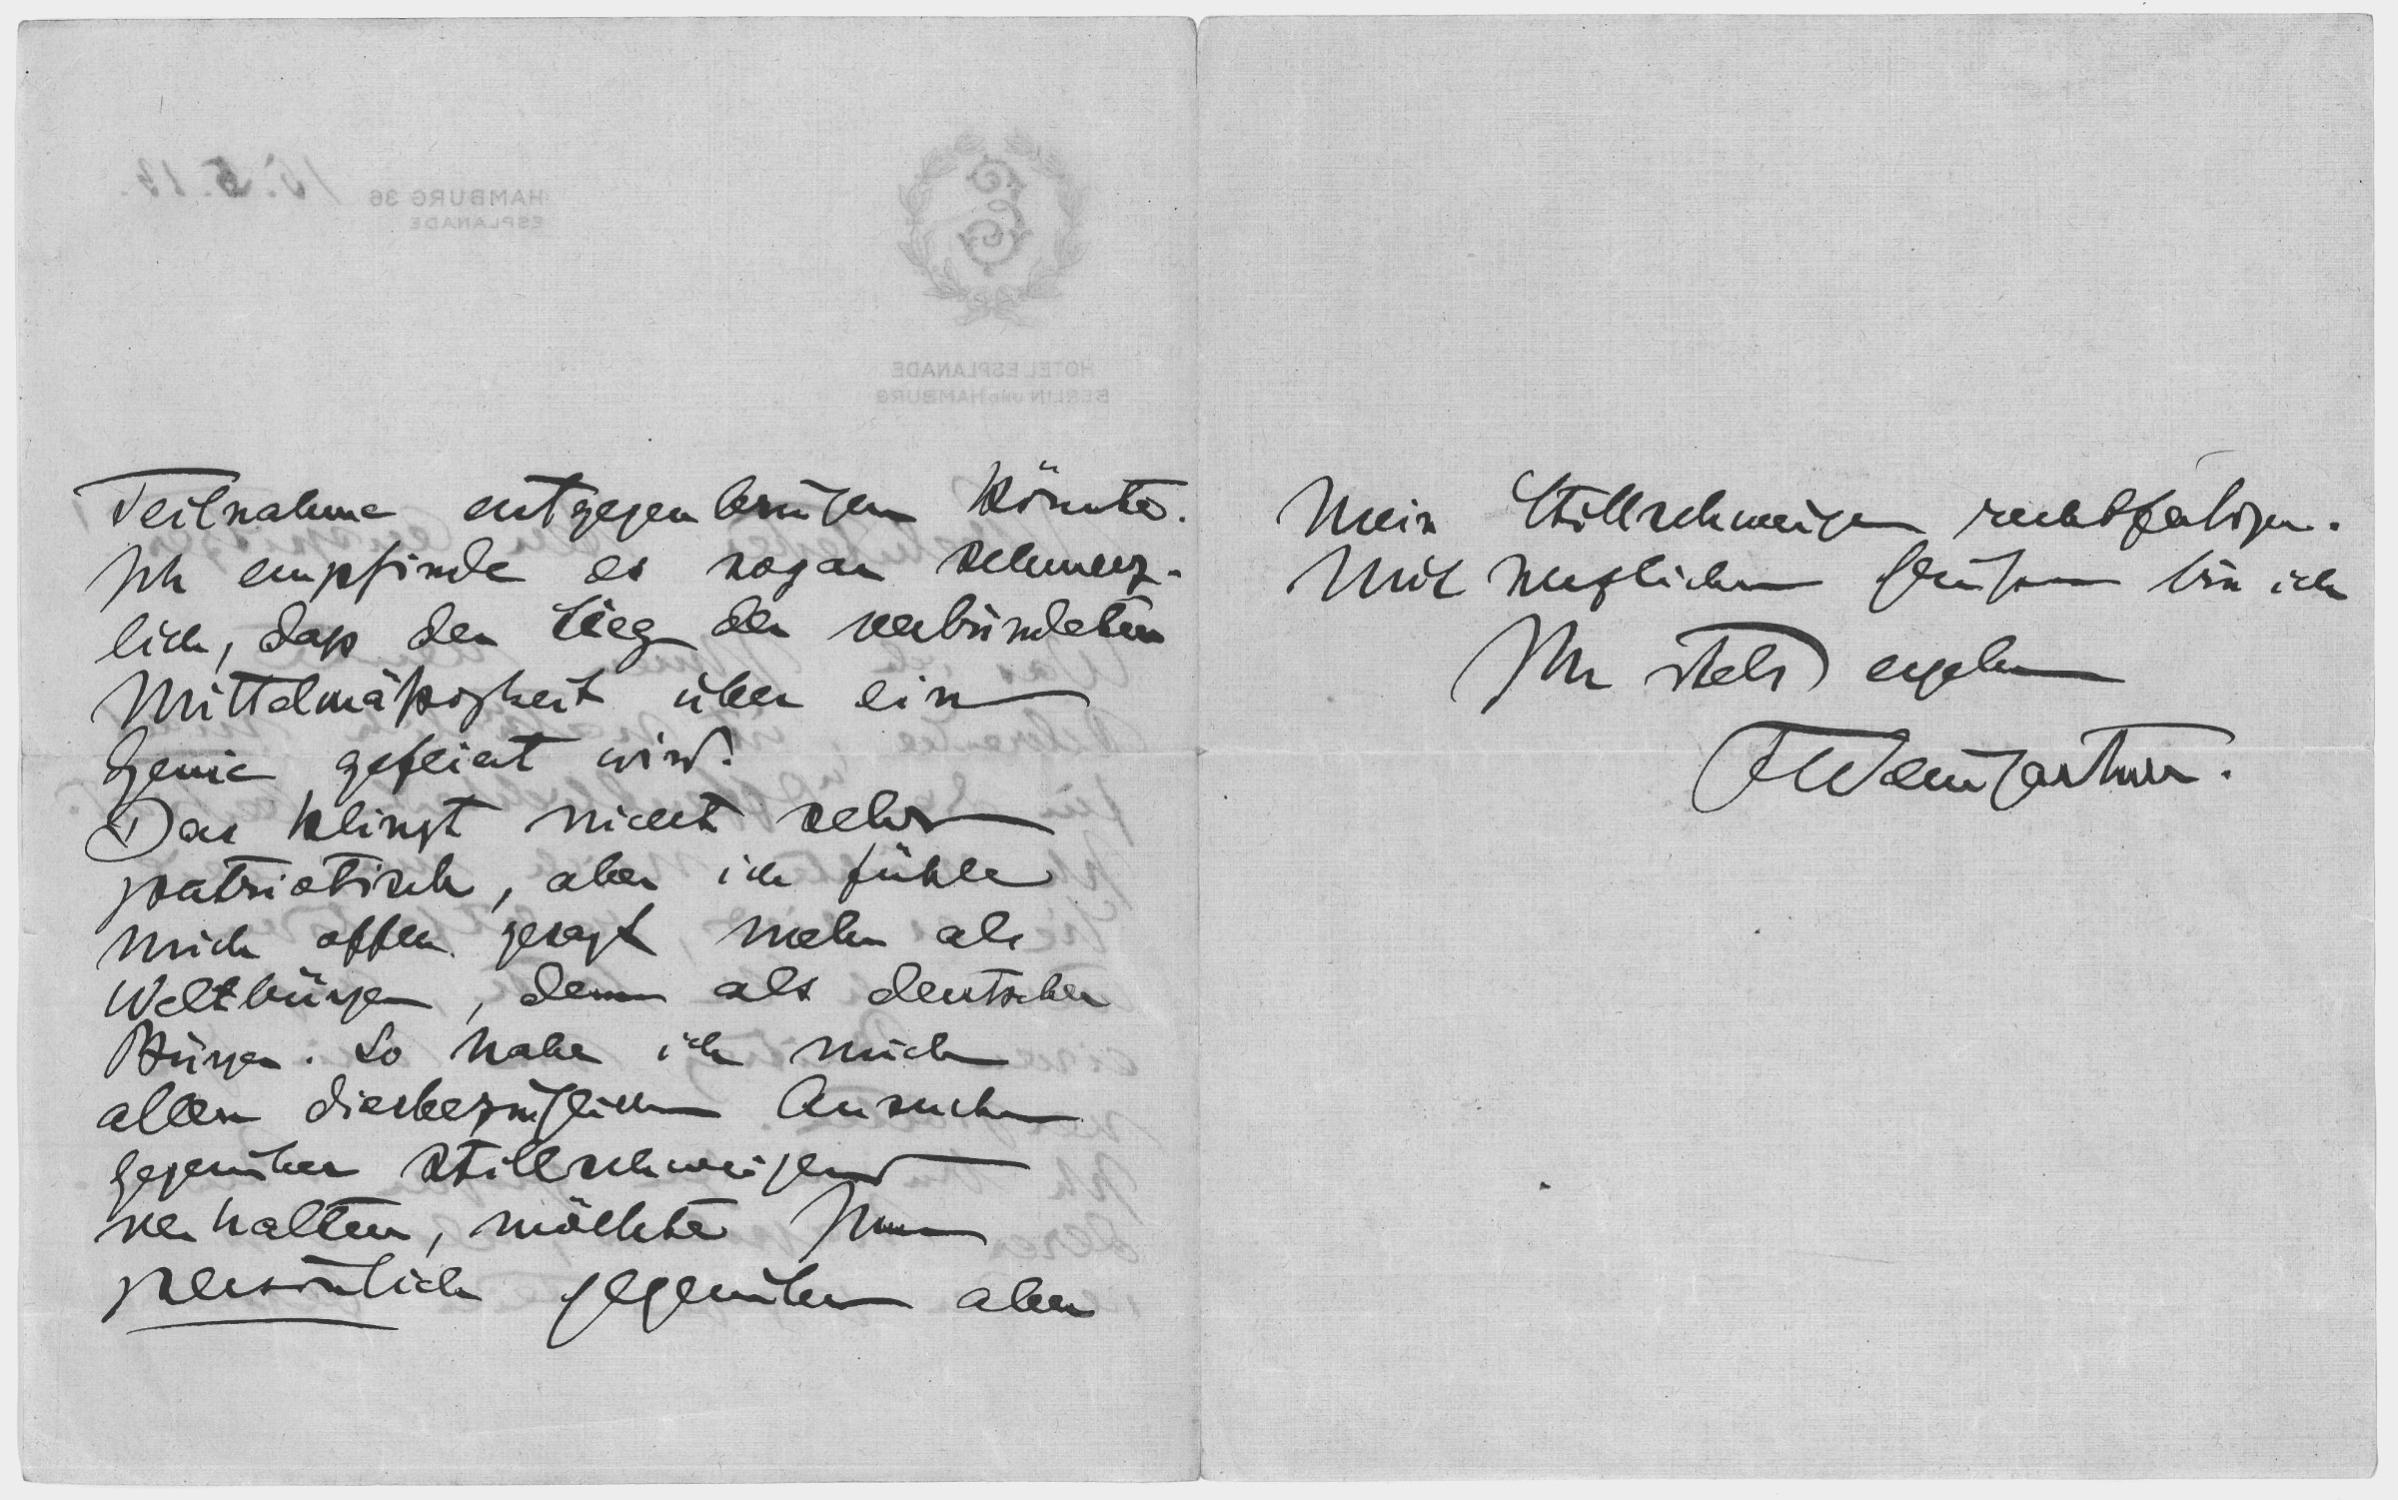 HAMBURG 36
ESPLANADE
HOTEL ESPLANADE
BERLIN UND HAMBURG
Teilnahme entgegenbringen könnte.
Ich empfinde es sogar schmerz-
lich, daß der Sieg der verbündeten
Mittelmäßigkeit über ein
Genie gefeiert wird.
Das klingt nicht sehr
patriotisch, aber ich fühle
mich offen gesagt mehr als
Weltbürger, denn als deutscher
Bürger. So habe ich mich
allen diesbezüglichen Ansuchen
gegenüber stillschweigend
verhalten, möchte Ihnen
persönlich gegenüber aber
mein Stillschweigen rechtfertigen.
Mit herzlichen Grüßen bin ich
Ihr stets ergebener
FWeingartner.